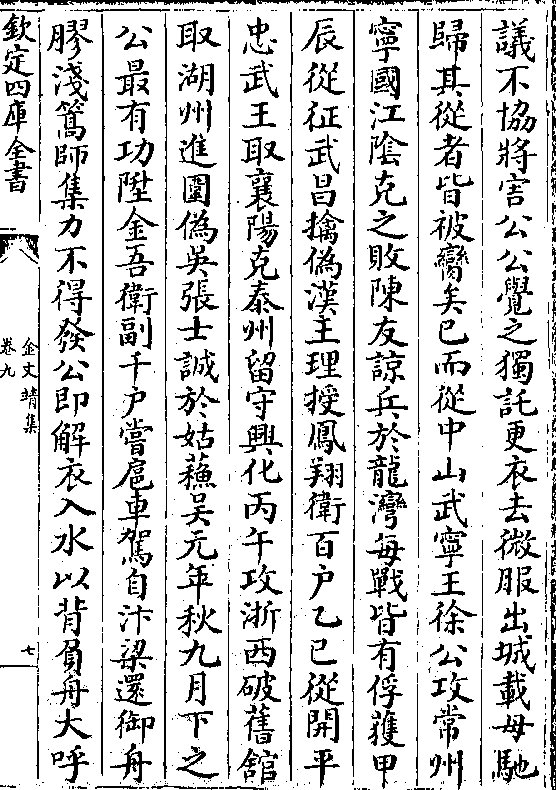 議不協將害公公覺之獨託更衣去微服出城載母馳
歸其從者皆被臠矣已而從中山武寧王徐公攻常州
寧國江陰克之敗陳友諒兵於龍灣每戰皆有俘獲甲
辰從征武昌擒偽漢主理授鳳翔衛百户乙巳從開平
忠武王取襄陽克泰州留守興化丙午攻浙西破舊館
取湖州進圍偽吳張士誠於姑蘓吳元年秋九月下之
公最有功陞金吾衛副千户嘗扈車駕自汴梁還御舟
膠淺篙師集力不得發公即解衣入水以背負舟大呼
欽定四庫全書
金文靖集
卷九
七